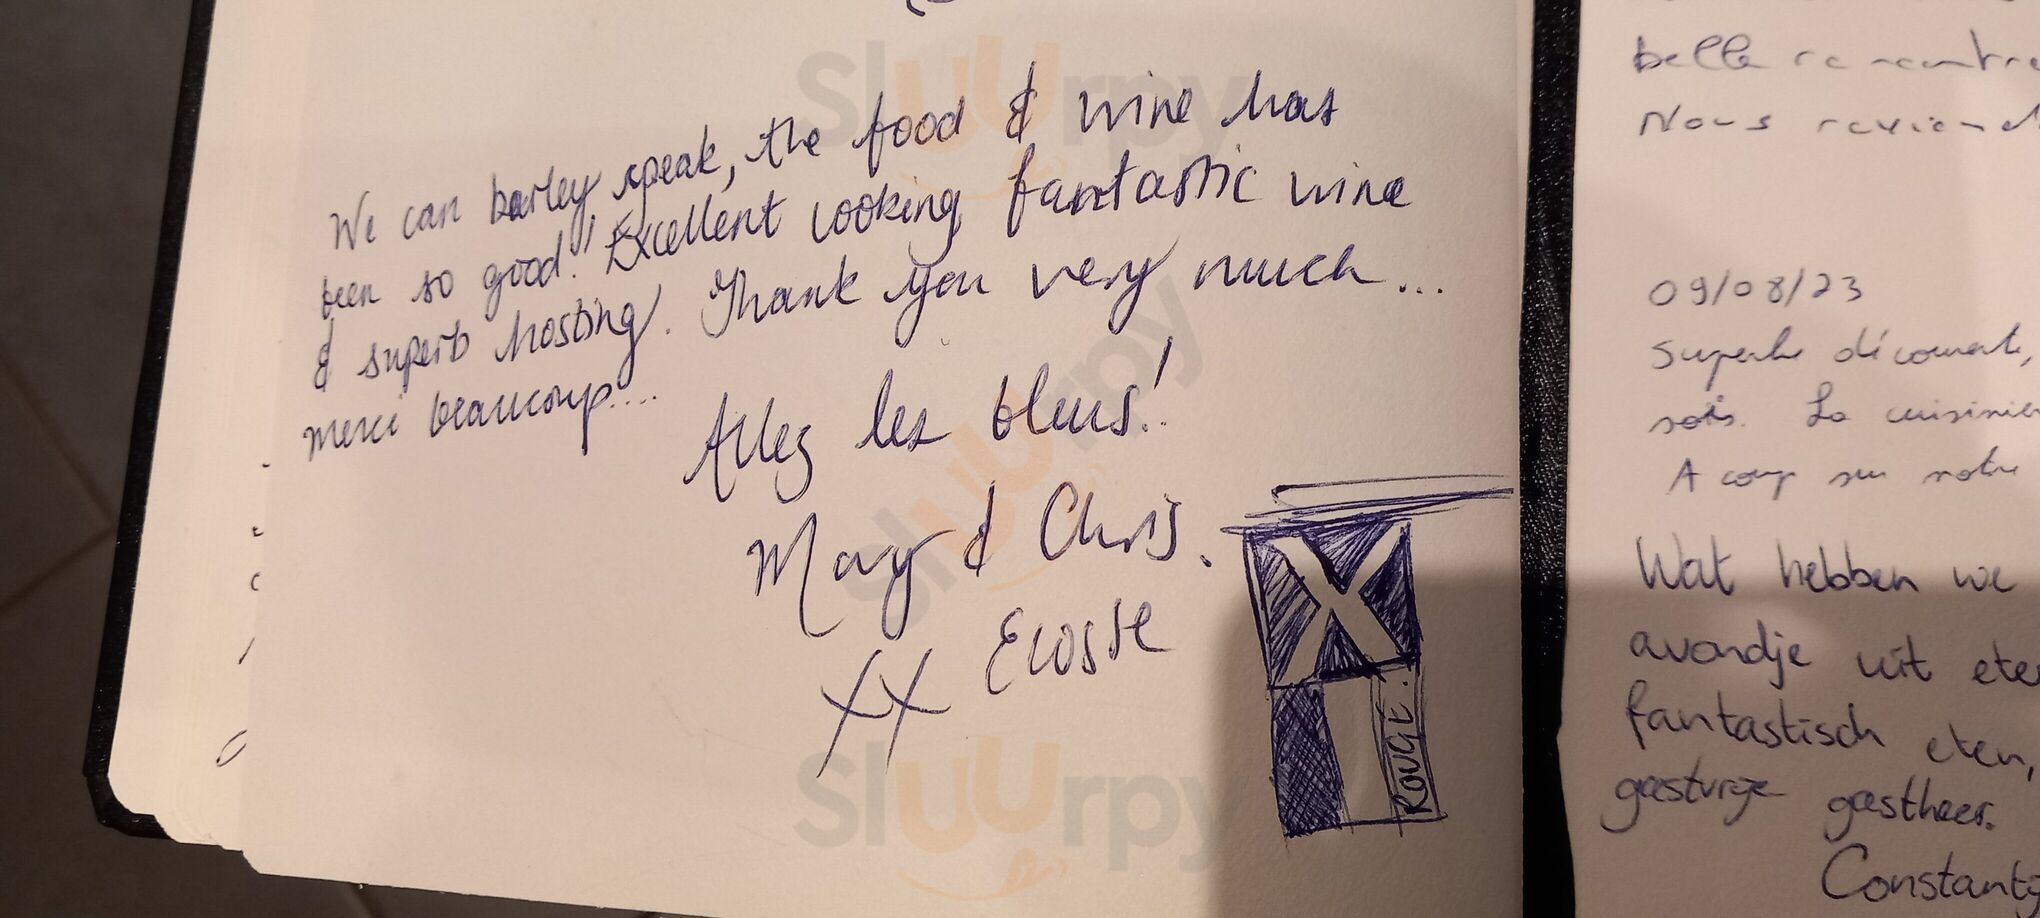 We can barley speak, the food & wine has
been so good! Excellent cooking fantastic wine
& superb hosting. Thank you very much...
merci beaucoup....
Allez les bleus!
Mary & Chris.
XX Ecosse
ROUGE.
belle rencontre
Nous
09/08/23
Superbe découverte,
La
A coup sur notre
Wat hebben we
avondje uit eten
fantastisch eten,
gastheer.
Sluurpy
Sluurpy
Sluurpy